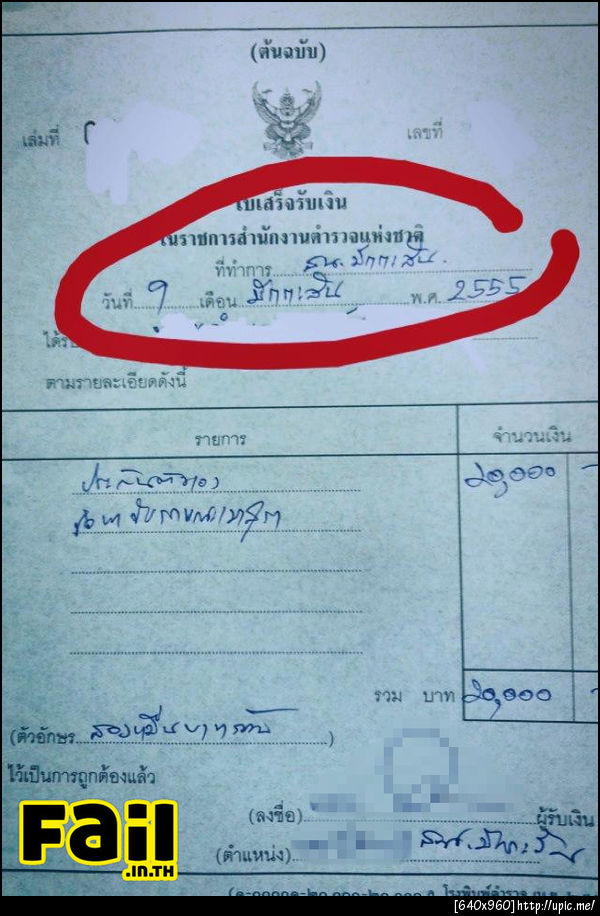 (ต้นฉบับ)
เล่มที่ เลขที่
ใบเสร็จรับเงิน
ในราชการสำนักงานตำรวจแห่งชาติ
ที่ทำการ สน.มักกะสัน
วันที่ 9 เดือน มักกะสัน พ.ศ. 2555
ได้รับ
ตามรายละเอียดดังนี้
รายการ จำนวนเงิน
ประกันตัวเอง 20,000 -
ข้อหา ขับรถขณะเมาสุรา
รวม บาท 20,000 -
(ตัวอักษร สองหมื่นบาทถ้วน)
ไว้เป็นการถูกต้องแล้ว
(ลงชื่อ) ผู้รับเงิน
(ตำแหน่ง) สน.มักกะสัน
โรงพิมพ์ตำรวจ
Fail
.IN.TH
[640x960]http://upic.me/